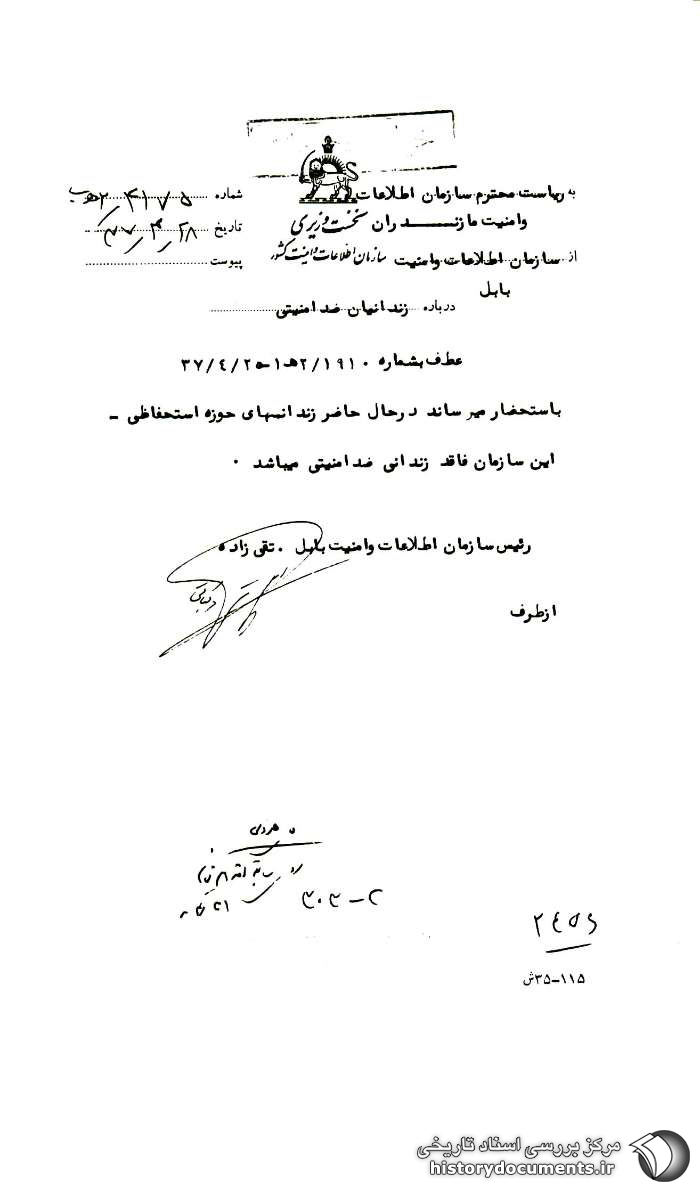 به ریاست محترم سازمان اطلاعات
وامنیت مازندران
نخست وزیری
سازمان اطلاعات و امنیت کشور
شماره
تاریخ ۳۷/۴/۲۸
پیوست
از سازمان اطلاعات وامنیت
بابل
درباره زندانیان ضد امنیتی
عطف بشماره ۲/۱۹۱۰هـ۱-۳۷/٤/۲۵
باستحضار میرساند درحال حاضر زندانهای حوزه استحفاظی -
این سازمان فاقد زندانی ضد امنیتی میباشد ۰
رئیس سازمان اطلاعات وامنیت بابل . تقی زاده
ازطرف
۳۰۳-۲
۳۵-۱۱۵ش
مرکز بررسی اسناد تاریخی
historydocuments.ir